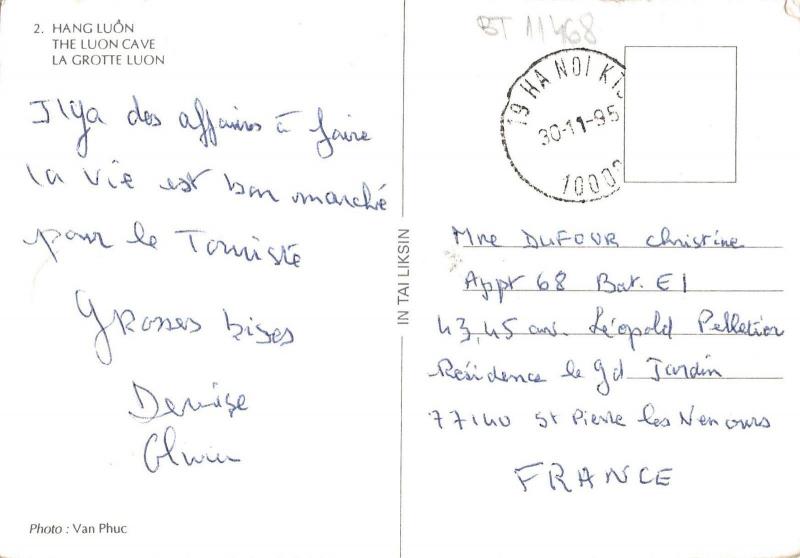 2. HANG LUÔN
THE LUON CAVE
LA GROTTE LUON
Il y a des affaires à faire
la vie est bon marché
pour le Touriste
Grosses bises
Denise
Olivier
Photo : Van Phuc
IN TAI LIKSIN
BT 11468
19 HA NOI KT
30-11-95
10000
Mme DUFOUR Christine
Appt 68 Bat. E1
43,45 av. Léopold Pelletier
Résidence le Gd Jardin
77140 St Pierre les Nemours
FRANCE